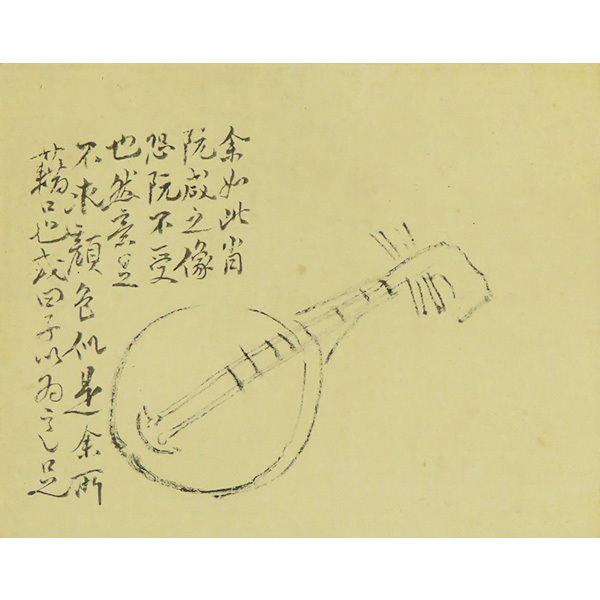 余如此肖
阮咸之像
恐阮不受
也然意足
不求顔色似是余所
藉口也或曰子以為意足